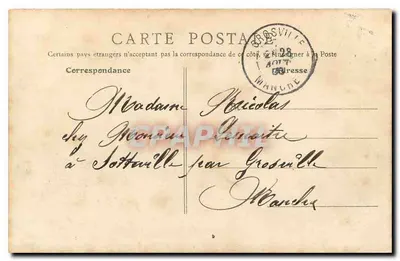 CARTE POSTALE
Certains pays étrangers n'acceptant pas la correspondance de ce côté, se renseigner à la Poste
Correspondance
Adresse
GROSVILLE
28
AOUT
MANCHE
Madame Nicolas
chez Monsieur Lemaitre
à Sotteville par Grosville
Manche